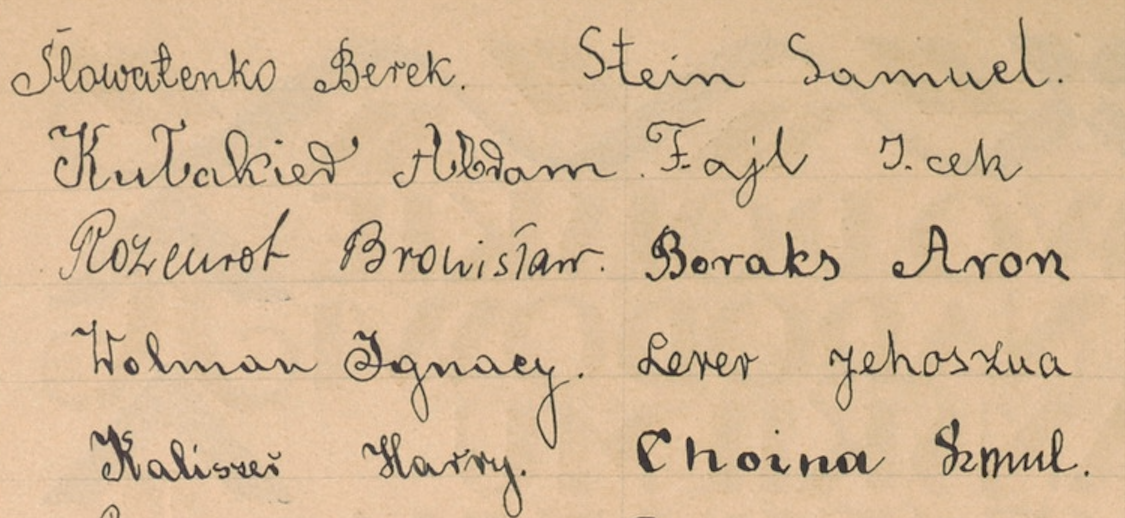 Sławatenko Berek. Stein Samuel.
Kułakied Abdam. Fajl I.cek
Rozenrot Bronisław. Boraks Aron
Wolman Ignacy. Lerer Jehoszua
Kaliszer Harry. Choina Szmul.